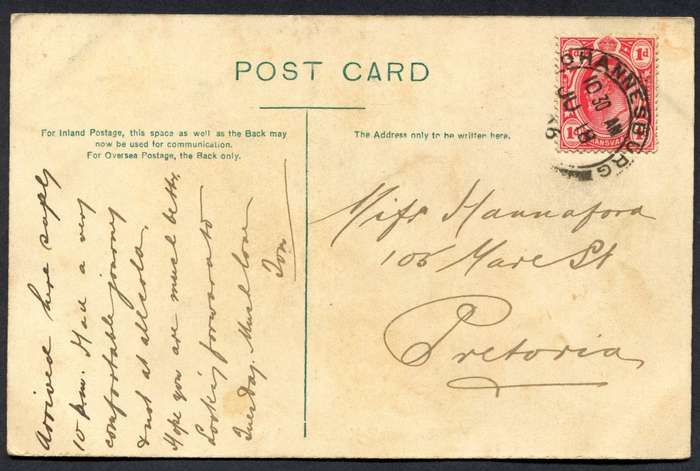 POST CARD
For Inland Postage, this space as well as the Back may
now be used for communication.
For Oversea Postage, the Back only.
The Address only to be written here.
1d 1d
1d
TRANSVAAL
JOHANNESBURG
10 30 AM
JU 18
Arrived here safely
10 p.m. Had a very
comfortable journey
& not at all cold.
Hope you are much better.
Looking forward to
Tuesday. Much love
Tom
Miss Hannaford
106 Mare St
Pretoria